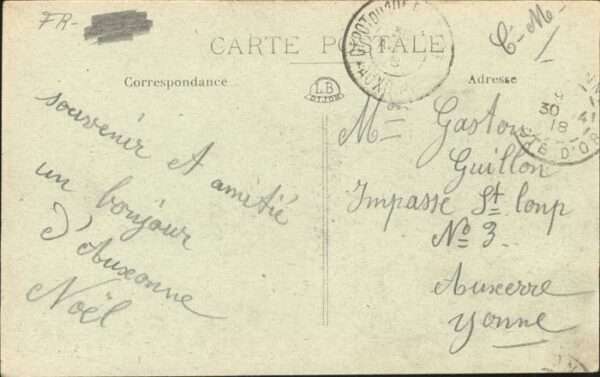 FR-
CARTE POSTALE
C-M-
1
Correspondance
LB
DIJON
Adresse
souvenir et amitié
un bonjour
d'Auxonne
Noël
Me Gaston
Guillon
Impasse St loup
No 3.
Auxerre
Yonne
30
18